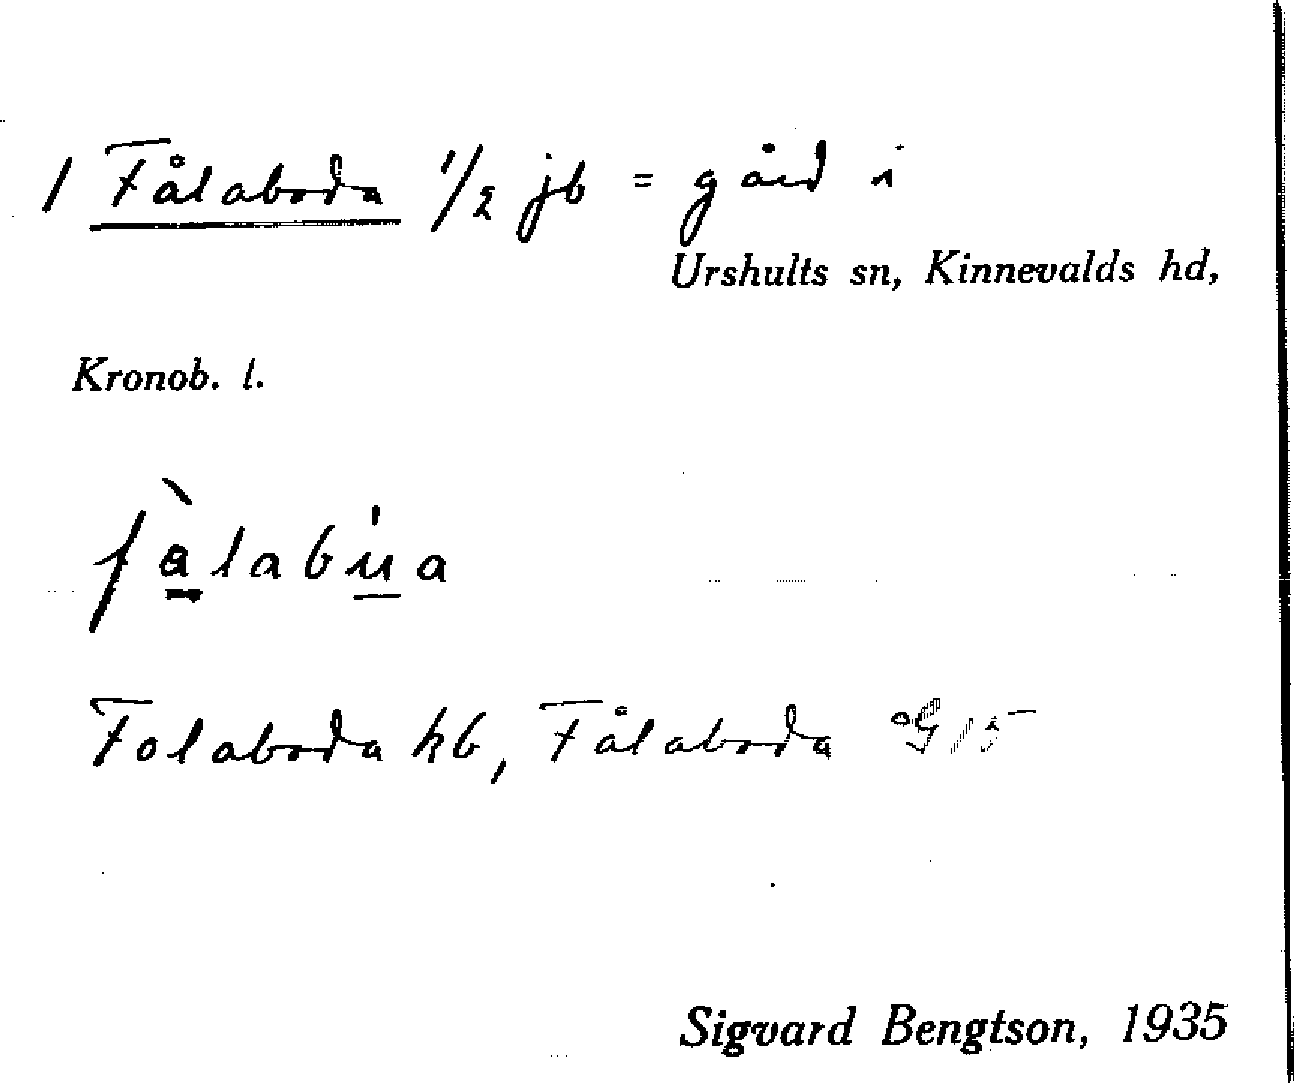 1 Fålaboda 1/2 jb = gård i
Urshults sn, Kinnevalds hd,
Kronob. l.
fàlabúa
Folaboda kb, Fålaboda G15
Sigvard Bengtson, 1935